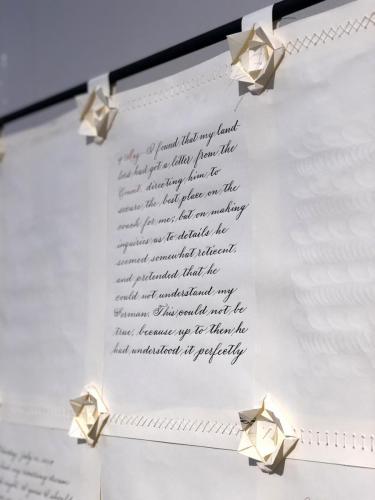 4 May—I found that my land-
lord had got a letter from the
Count, directing him to
secure the best place on the
coach for me; but on making
inquiries as to details he
seemed somewhat reticent,
and pretended that he
could not understand my
German. This could not be
true, because up to then he
had understood it perfectly